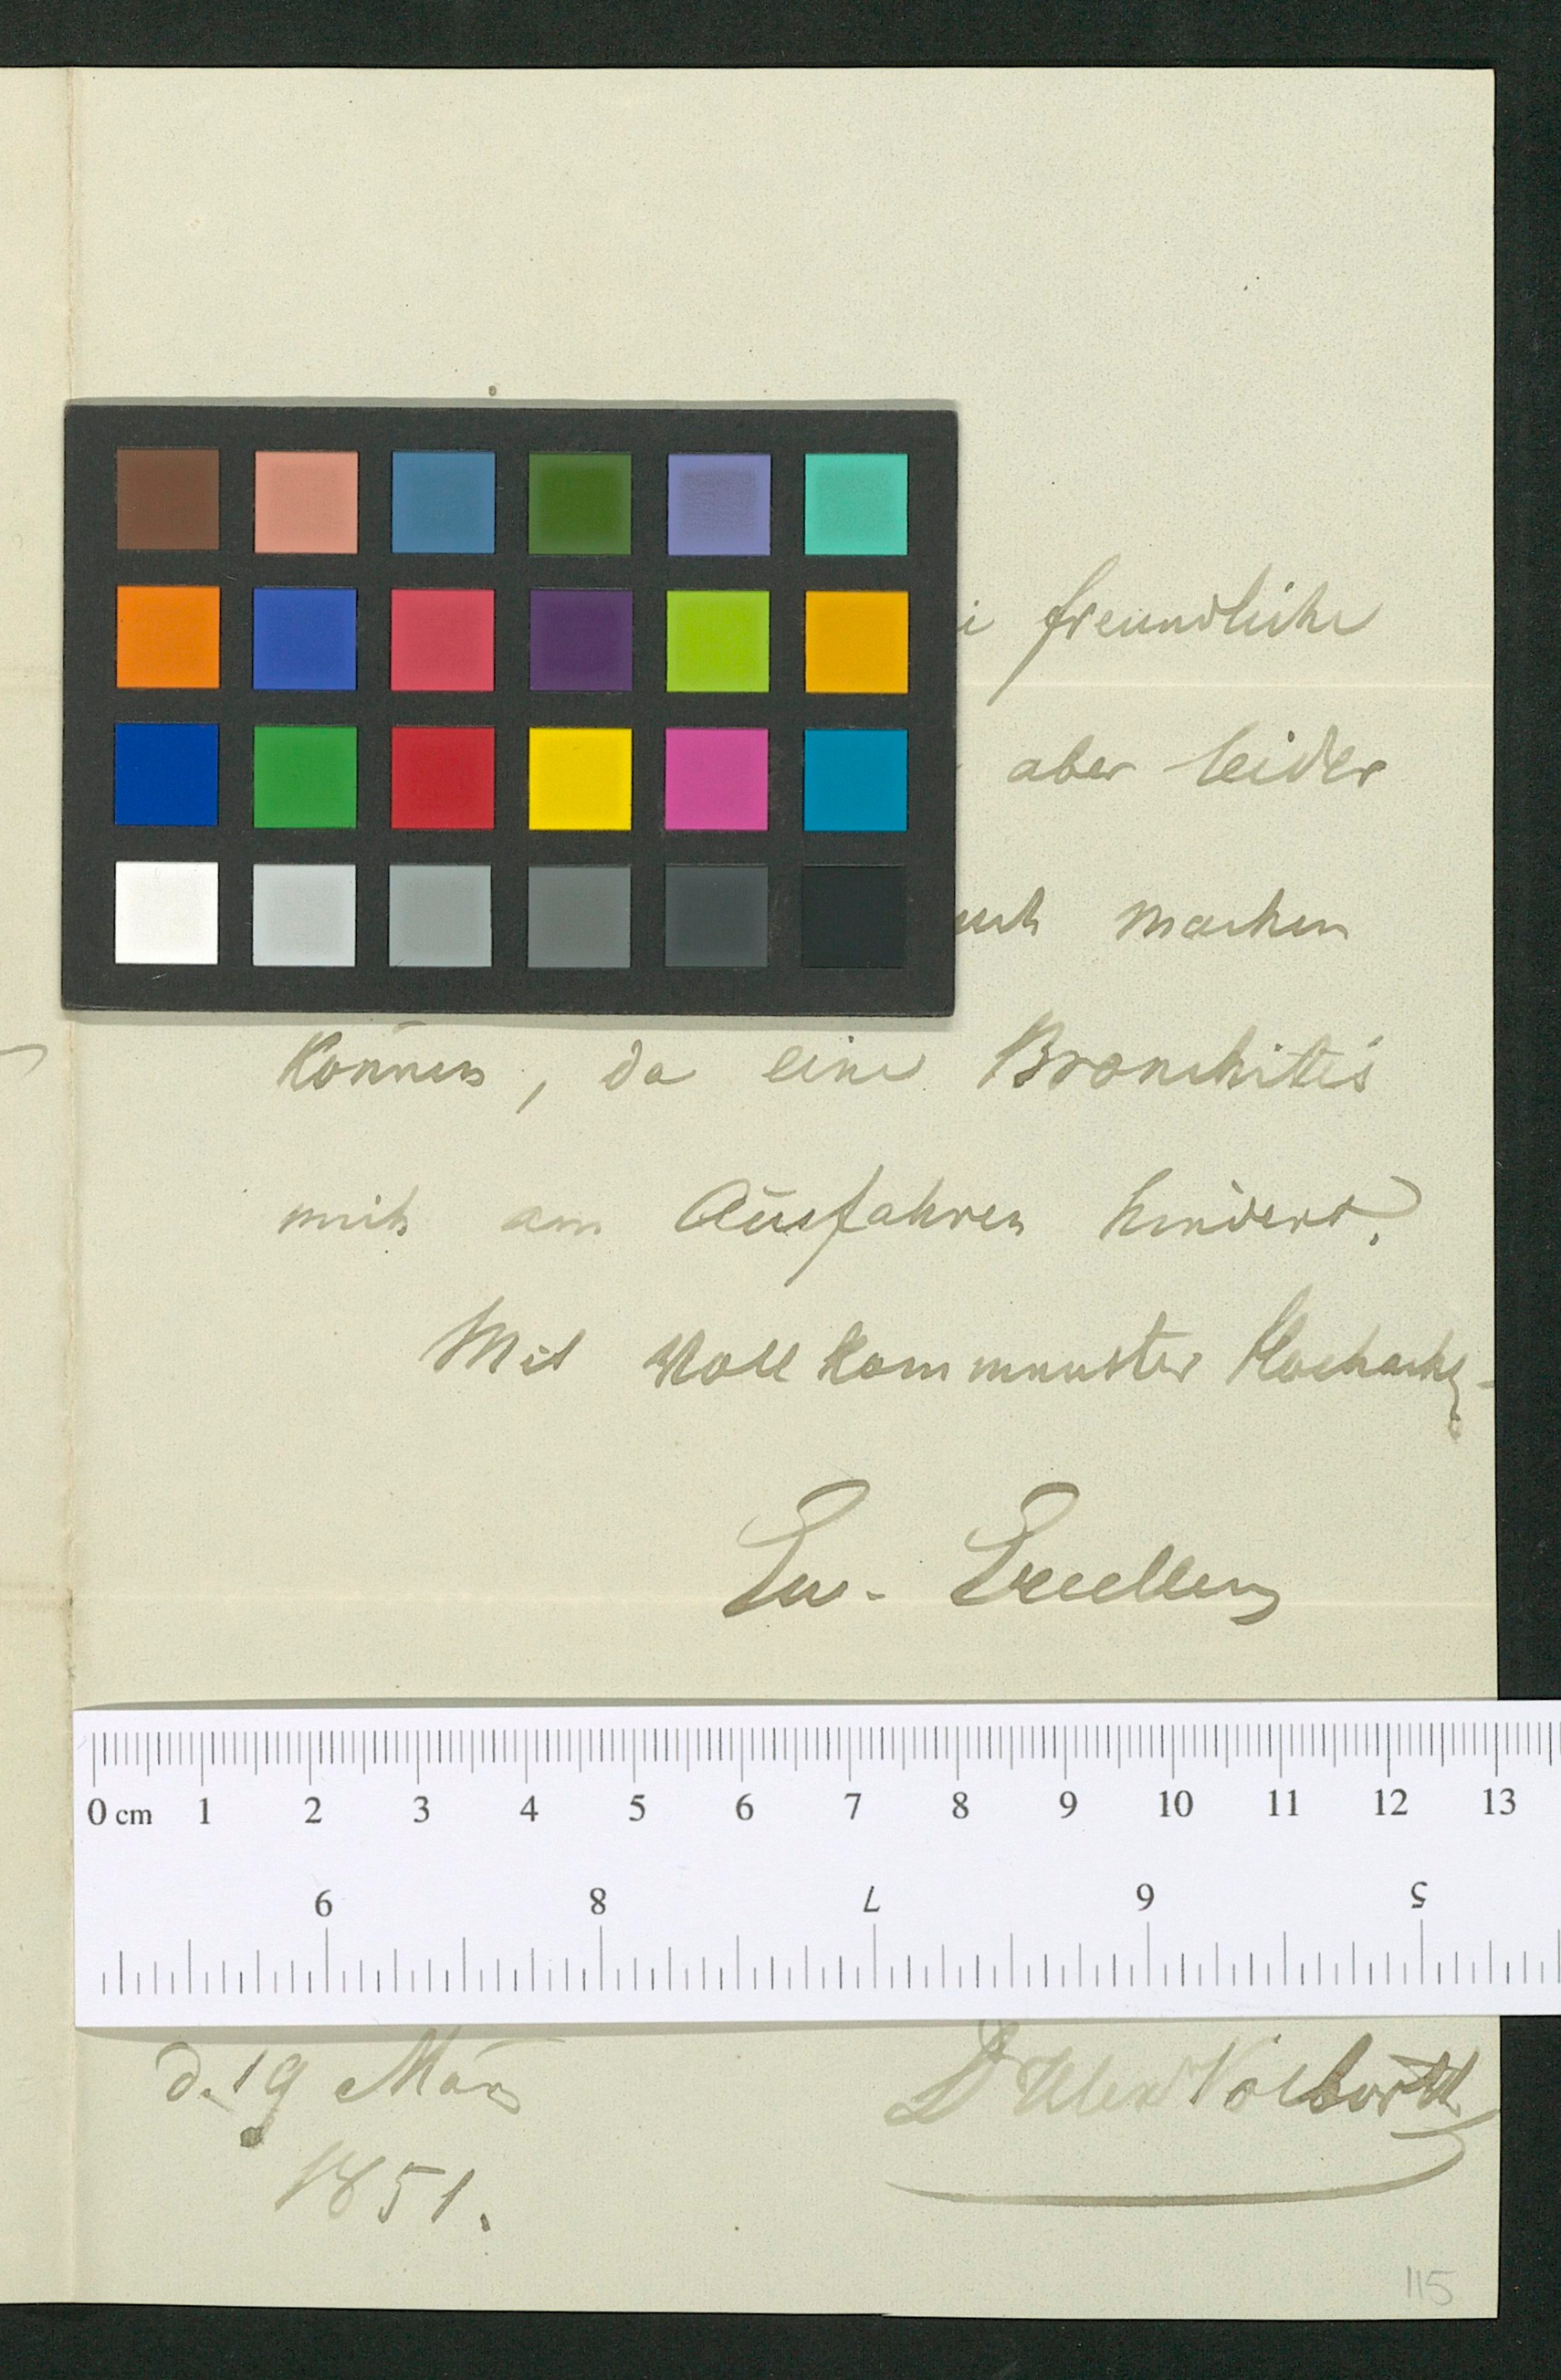 freundliche
aber leider
machen
können, da eine Bronchitis
mich am Ausfahren hindert.
Mit vollkommenster Hochachtg-
Ew. Excellenz
0 cm 1 2 3 4 5 6 7 8 9 10 11 12 13
9 8 7 6 5
d. 19 März
1851.
Dr Alex Volborth
115